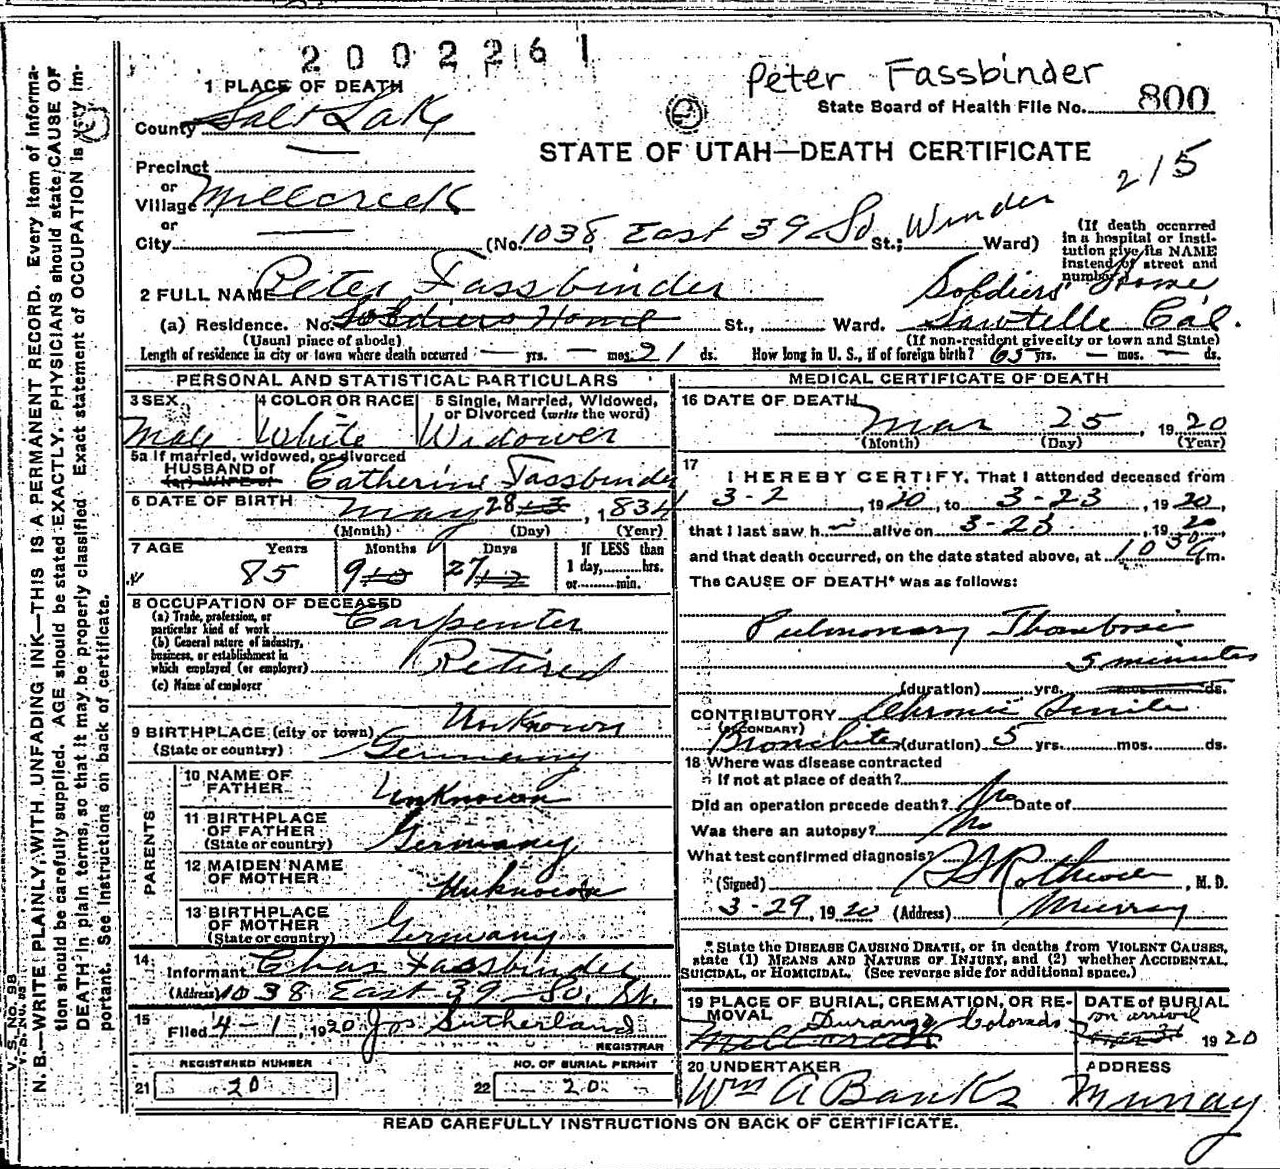 2002261
Peter Fassbinder
State Board of Health File No. 800
1 PLACE OF DEATH
County Salt Lake
STATE OF UTAH—DEATH CERTIFICATE
215
Precinct
or
Village Millcreek
or
City (No. 1038 East 39 So St.; Winder Ward)
(If death occurred in a hospital or institution give its NAME instead of street and number.)
2 FULL NAME Peter Fassbinder
(a) Residence. No. Soldiers Home St., Ward. Soldiers Home Sawtelle Cal.
(Usual place of abode) (If non-resident give city or town and State)
Length of residence in city or town where death occurred — yrs. — mos. 21 ds. How long in U. S., if of foreign birth? 65 yrs. — mos. — ds.
PERSONAL AND STATISTICAL PARTICULARS
3 SEX 4 COLOR OR RACE 5 Single, Married, Widowed, or Divorced (write the word)
Male White Widower
5a If married, widowed, or divorced
HUSBAND of
(or) WIFE of Catherine Fassbinder
6 DATE OF BIRTH May 28, 1834
(Month) (Day) (Year)
7 AGE Years Months Days If LESS than
1 day, hrs.
or min.
85 9 27
8 OCCUPATION OF DECEASED
(a) Trade, profession, or
particular kind of work Carpenter
(b) General nature of industry,
business, or establishment in
which employed (or employer) Retired
(c) Name of employer
9 BIRTHPLACE (city or town) Unknown
(State or country) Germany
PARENTS
10 NAME OF
FATHER Unknown
11 BIRTHPLACE
OF FATHER
(State or country) Germany
12 MAIDEN NAME
OF MOTHER Unknown
13 BIRTHPLACE
OF MOTHER
(State or country) Germany
14
Informant Chas Fassbinder
(Address) 1038 East 39 So. St.
15
Filed 4-1, 1920 Jos Sutherland
REGISTRAR
REGISTERED NUMBER NO. OF BURIAL PERMIT
21 20 22 20
MEDICAL CERTIFICATE OF DEATH
16 DATE OF DEATH
Mar 25, 1920
(Month) (Day) (Year)
17
I HEREBY CERTIFY, That I attended deceased from
3-2, 1920, to 3-23, 1920,
that I last saw h alive on 3-23, 1920
and that death occurred, on the date stated above, at m.
The CAUSE OF DEATH* was as follows:
Pulmonary Thrombosis
5 minutes
(duration) yrs. mos. ds.
CONTRIBUTORY Chronic Senile
(SECONDARY)
Bronchitis (duration) 5 yrs. mos. ds.
18 Where was disease contracted
If not at place of death?
Did an operation precede death? No Date of
Was there an autopsy? No
What test confirmed diagnosis?
(Signed) , M. D.
3-29, 1920 (Address) Murray
*State the DISEASE CAUSING DEATH, or in deaths from VIOLENT CAUSES,
state (1) MEANS AND NATURE OF INJURY, and (2) whether ACCIDENTAL,
SUICIDAL, or HOMICIDAL. (See reverse side for additional space.)
19 PLACE OF BURIAL, CREMATION, OR REMOVAL DATE of BURIAL
Durango Colorado on arrival
Millcreek 1920
20 UNDERTAKER ADDRESS
Wm A Banks Murray
READ CAREFULLY INSTRUCTIONS ON BACK OF CERTIFICATE.
V. S. No. 98
N. B.—WRITE PLAINLY, WITH UNFADING INK—THIS IS A PERMANENT RECORD. Every item of informa-
tion should be carefully supplied. AGE should be stated EXACTLY. PHYSICIANS should state CAUSE OF
DEATH in plain terms, so that it may be properly classified. Exact statement of OCCUPATION is very im-
portant. See Instructions on back of certificate.